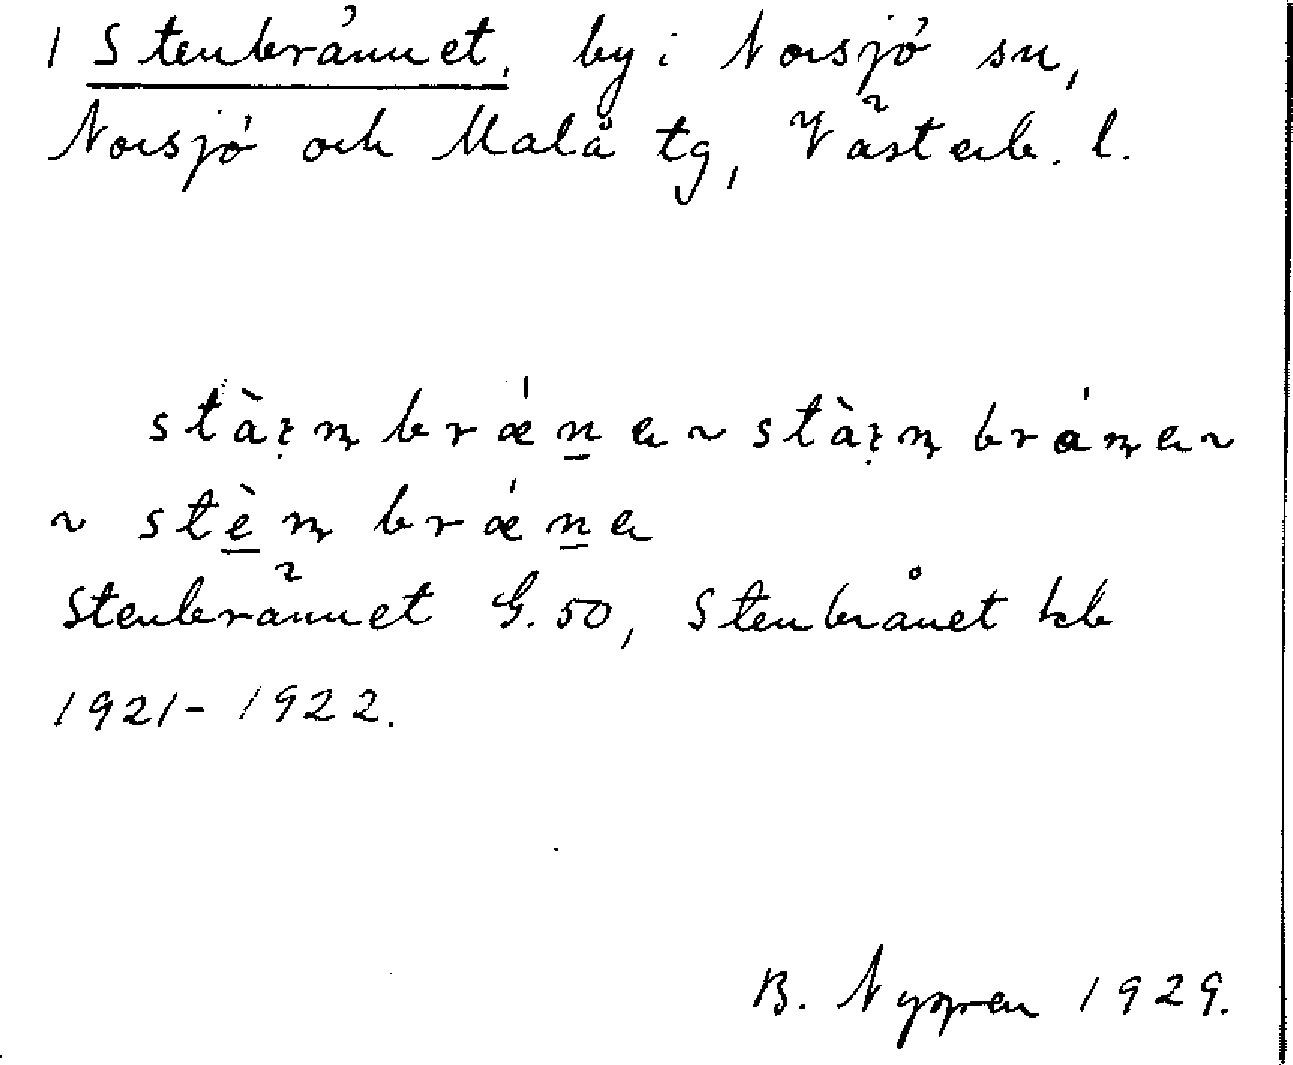 1 Stenbrännet, by i Norsjö sn,
Norsjö och Malå tg, Västerb. l.
stàɪm brǽna ~ stàɪm brána ~
~ stèm brǽna
Stenbrännet G. 50, Stenbrånet kb
1921-1922.
B. Nygren 1929.